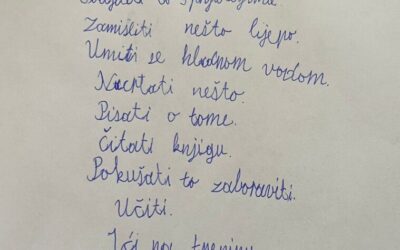 Zamisliti nešto lijepo.
Umiti se hladnom vodom.
Nacrtati nešto.
Pisati o tome.
Čitati knjigu.
Pokušati to zaboraviti.
Učiti.